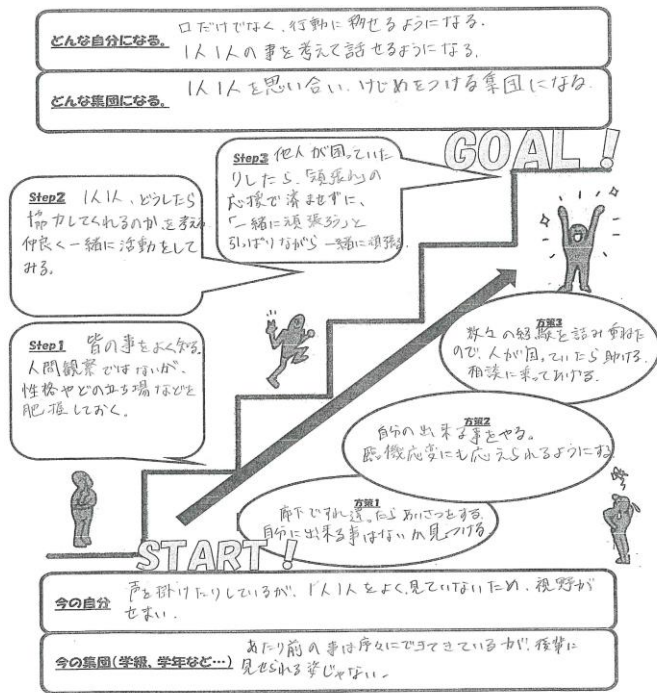 どんな自分になる。
口だけでなく、行動に移せるようになる.
1人1人の事を考えて話せるようになる.
どんな集団になる。
1人1人を思い合い、けじめをつける集団になる.
GOAL!
Step3 他人が困っていた
りしたら、「頑張れ」の
応援で済ませずに、
「一緒に頑張ろう」と
引っぱりながら一緒に頑張る.
Step2 1人1人、どうしたら
協力してくれるのか、を考え
仲良く一緒に活動をして
みる。
Step1 皆の事をよく知る.
人間観察ではないが、
性格やどの立ち場などを
把握しておく。
方策3
数々の経験を積み重ねた
ので、人が困っていたら助ける.
相談に乗ってあげる.
方策2
自分の出来る事をやる。
臨機応変にも応えられるようにする
方策1
廊下ですれ違ったらあいさつをする.
自分に出来る事はないか見つける
START!
今の自分
声を掛けたりしているが、1人1人をよく見ていないため、視野が
せまい.
今の集団(学級、学年など…)
あたり前の事は序々にできてきているが、後輩に
見せられる姿じゃない。